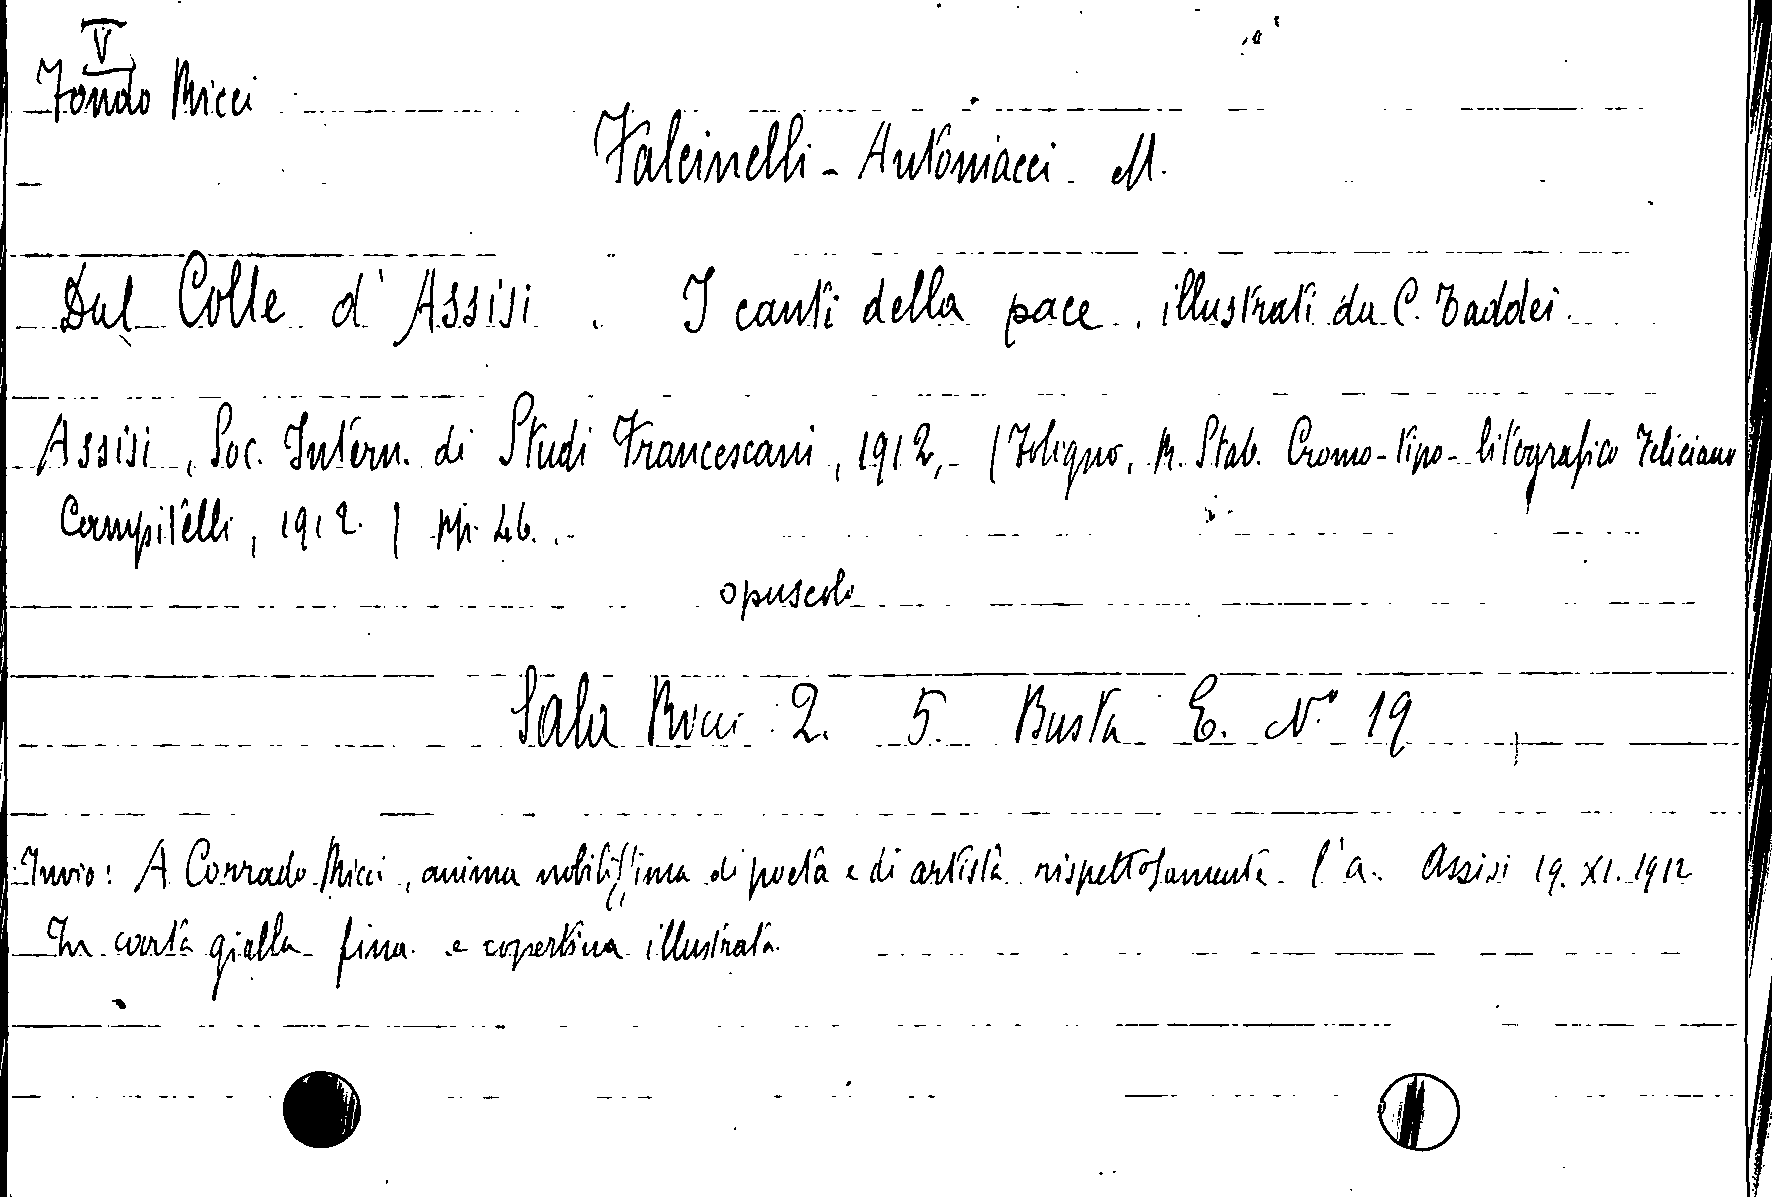 V
Fondo Ricci
Falcinelli - Antoniacci M.
Dal Colle d'Assisi. I canti della pace. illustrati da C. Taddei.
Assisi, Soc. Intern. di Studi Francescani, 1912, - (Foligno, R. Stab. Cromo-tipo-litografico Feliciano
Campitelli, 1912.) pp. 46.
opuscolo
Sala Ricci 2. 5. Busta E. N.° 19
Invio: A Corrado Ricci, anima nobilissima di poeta e di artista rispettosamente l'a. Assisi 19. XI. 1912
In carta gialla fina e copertina illustrata.